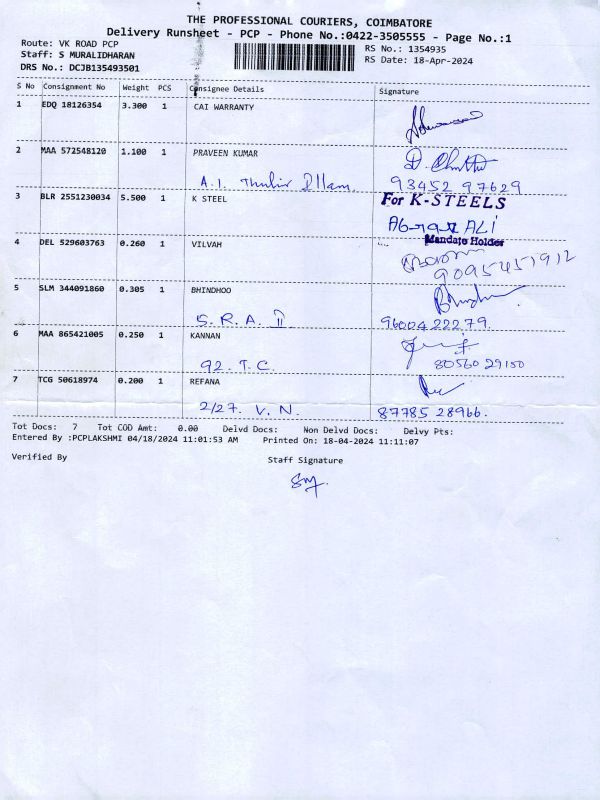 THE PROFESSIONAL COURIERS, COIMBATORE
Delivery Runsheet - PCP - Phone No.:0422-3505555 - Page No.:1
Route: VK ROAD PCP
Staff: S MURALIDHARAN
DRS No.: DCJB135493501
RS No.: 1354935
RS Date: 18-Apr-2024
S No Consignment No Weight PCS Consignee Details Signature
1 EDQ 18126354 3.300 1 CAI WARRANTY
2 MAA 572548120 1.100 1 PRAVEEN KUMAR
A.I. Illam 93452 97629
3 BLR 2551230034 5.500 1 K STEEL For K-STEELS
ALI
Mandate Holder
4 DEL 529603763 0.260 1 VILVAH
9095451912
5 SLM 344091860 0.305 1 BHINDHOO
S. R. A. II 9600422279.
6 MAA 865421005 0.250 1 KANNAN
92. T. C. 80560 29150
7 TCG 50618974 0.200 1 REFANA
2/27. V. N. 87785 28966.
Tot Docs: 7 Tot COD Amt: 0.00 Delvd Docs: Non Delvd Docs: Delvy Pts:
Entered By :PCPLAKSHMI 04/18/2024 11:01:53 AM Printed On: 18-04-2024 11:11:07
Verified By Staff Signature